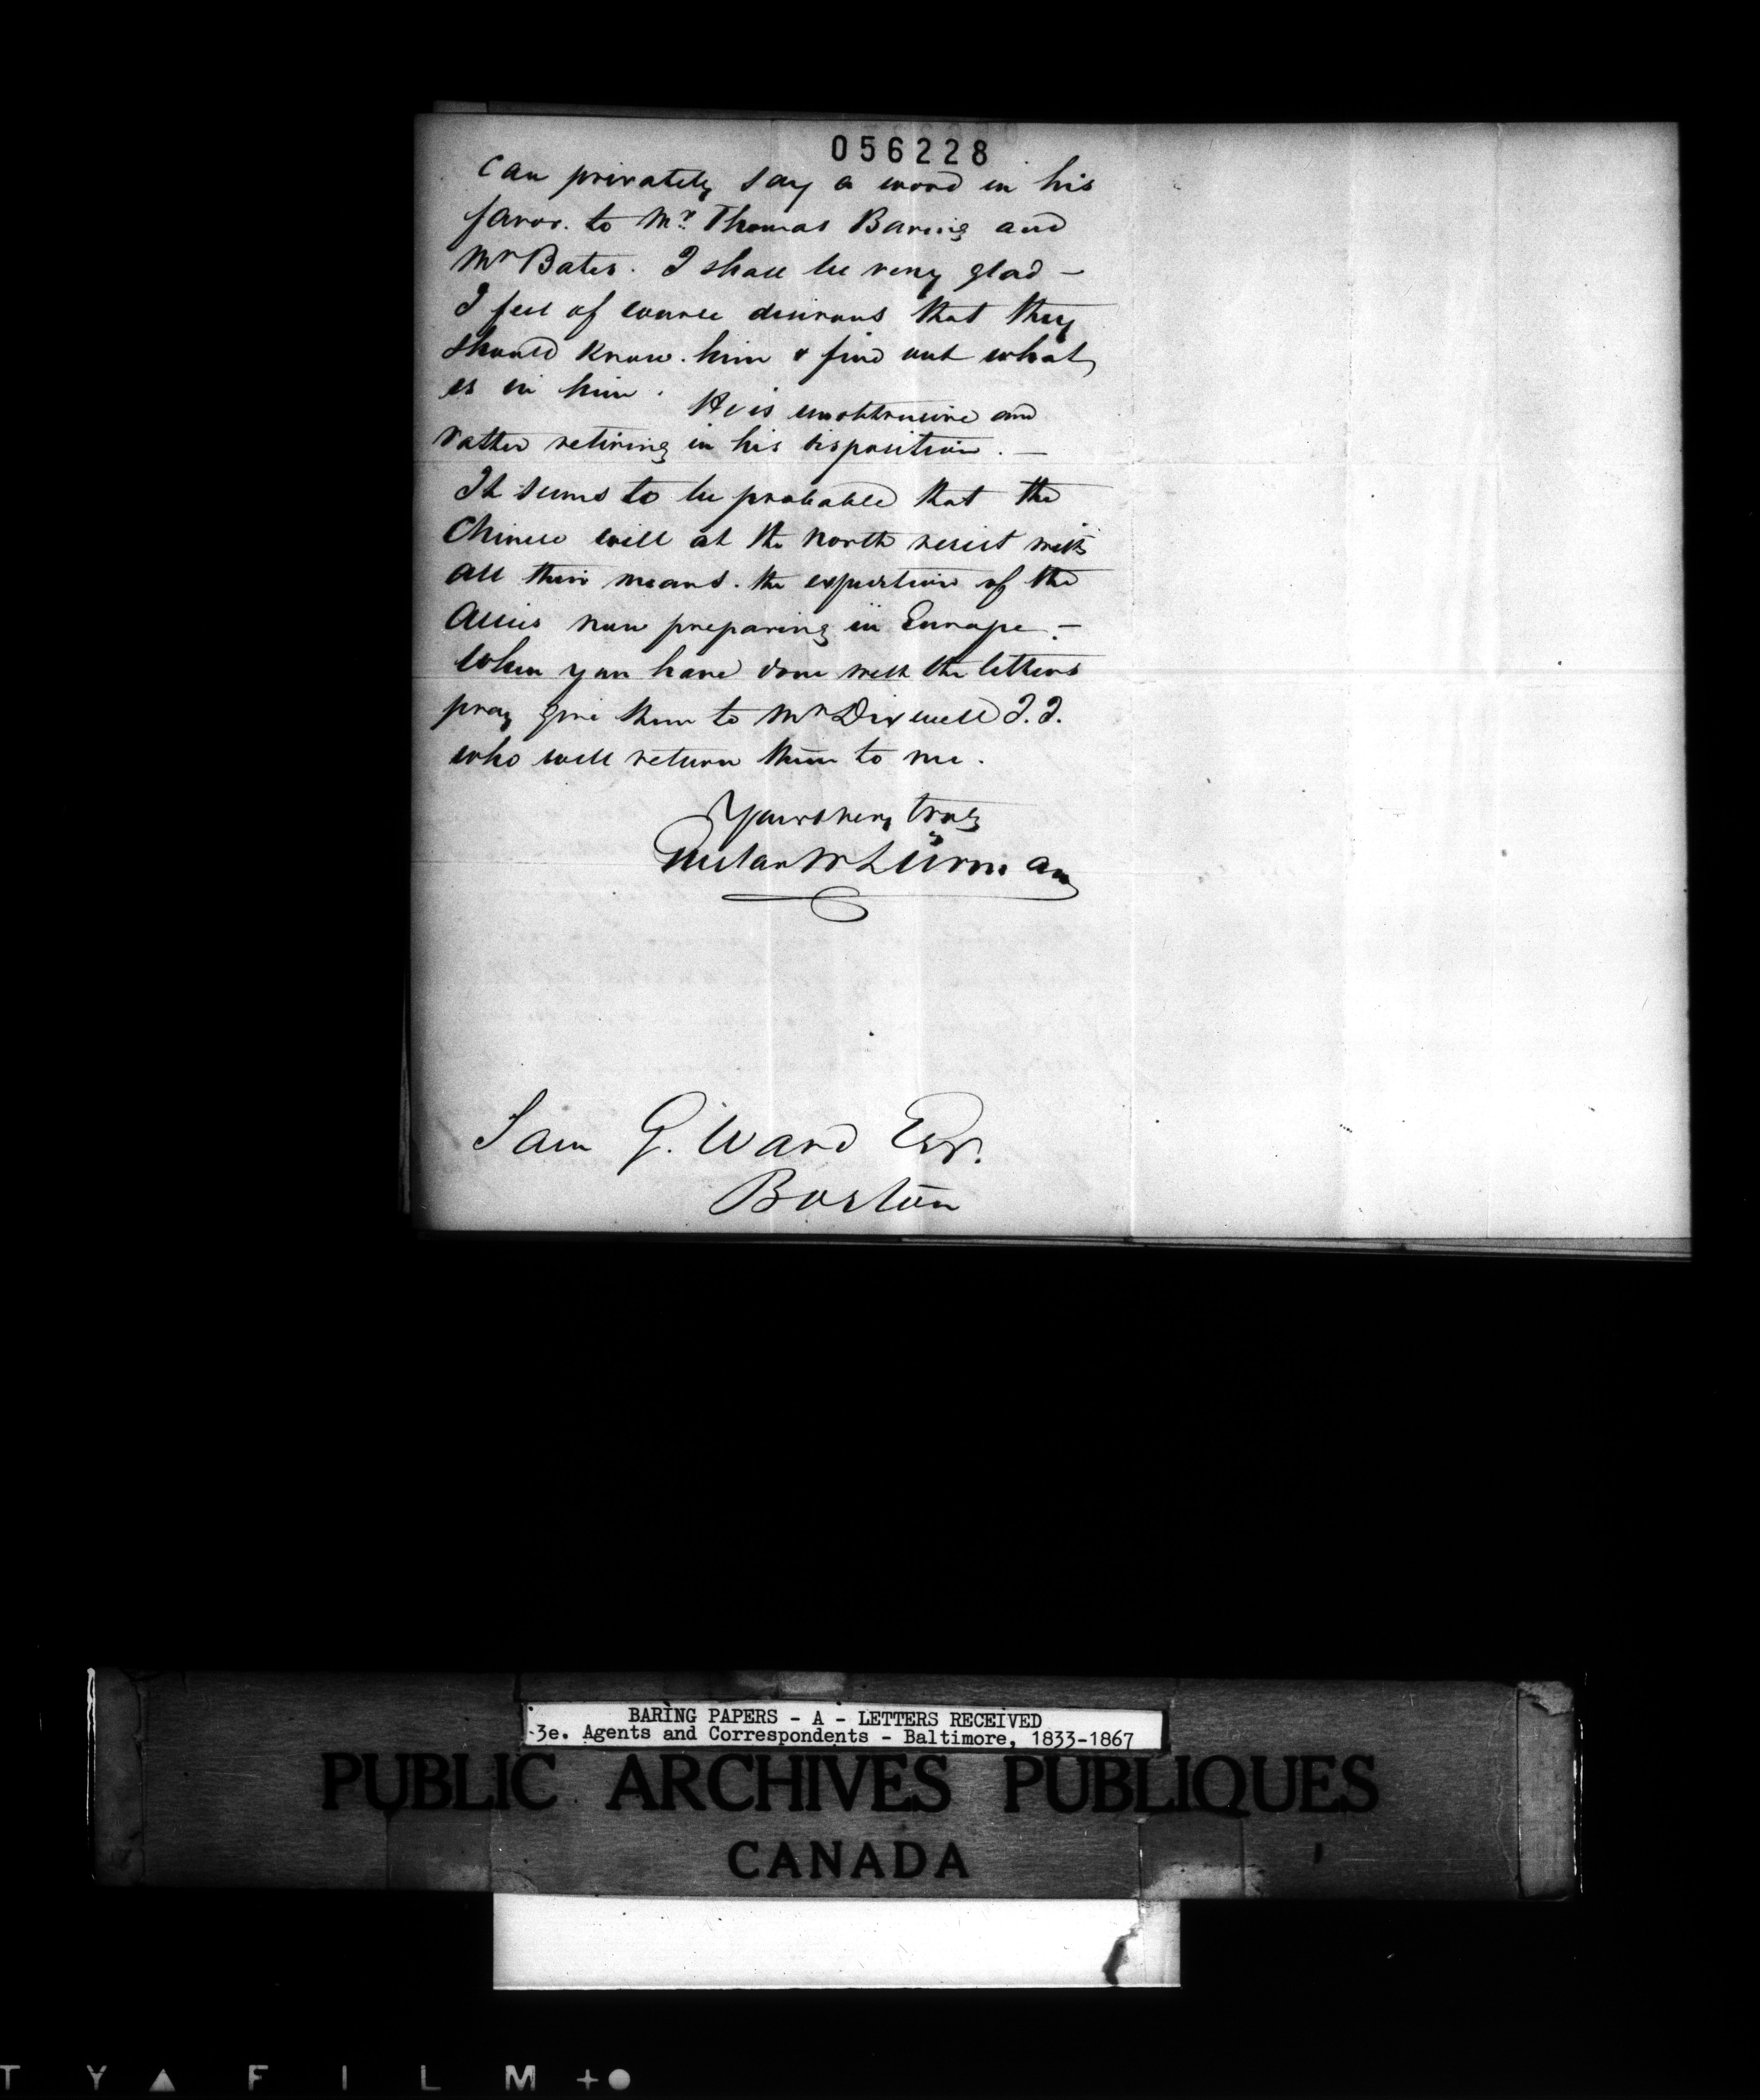 056228
can privately say a word in his
favor. to Mr. Thomas Baring and
Mr Bates. I shall be very glad —
I feel of course desirous that they
should know. him & find out what
is in him. He is unobtrusive and
rather retiring in his disposition. —
It seems to be probable that the
Chinese will at the north resist with
all their means. the expedition of the
Allies now preparing in Europe. —
When you have done with the letters
pray give them to Mr Dixwell J. J.
who will return them to me.
Yours very truly
Gustav W Lürman
Sam G. Ward Esqr.
Boston
BARING PAPERS - A - LETTERS RECEIVED
3e. Agents and Correspondents - Baltimore, 1833-1867
PUBLIC ARCHIVES PUBLIQUES
CANADA
T Y ▲ F I L M +●